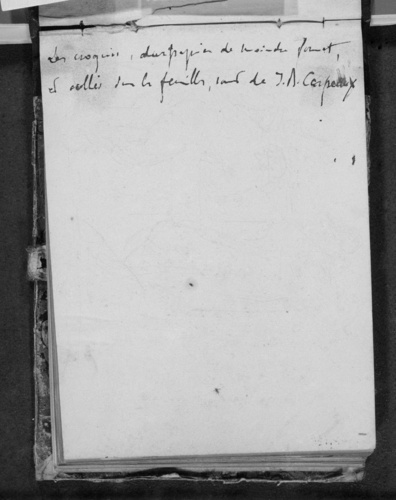 Les croquis, sur papier de moindre format,
et collés sur les feuilles, sont de J. B. Carpeaux